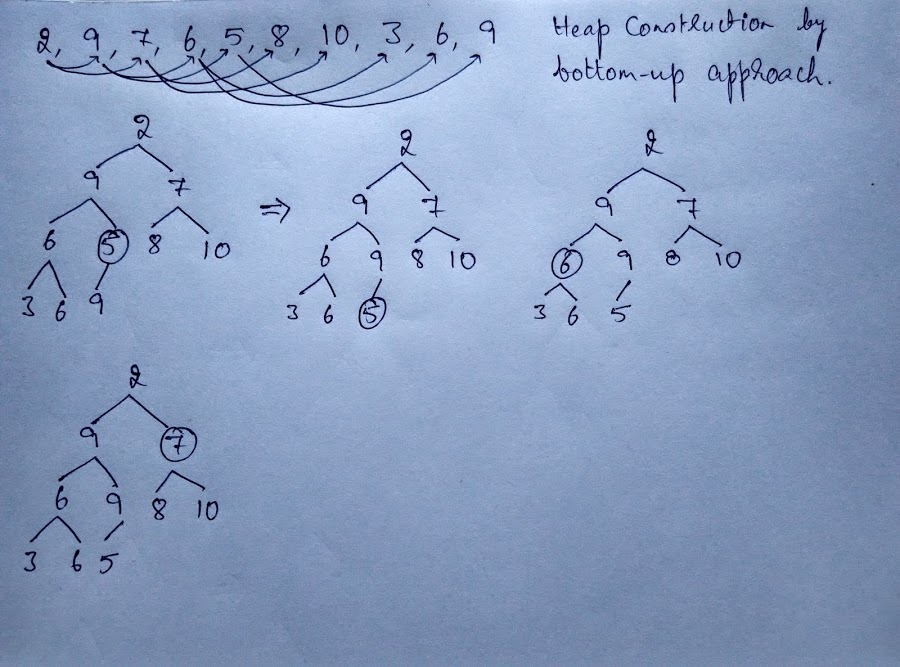 2, 9, 7, 6, 5, 8, 10, 3, 6, 9
Heap Construction by
bottom-up approach.
2
9 7
6 5 8 10
3 6 9
⇒
2
9 7
6 9 8 10
3 6 5
2
9 7
6 9 8 10
3 6 5
2
9 7
6 9 8 10
3 6 5